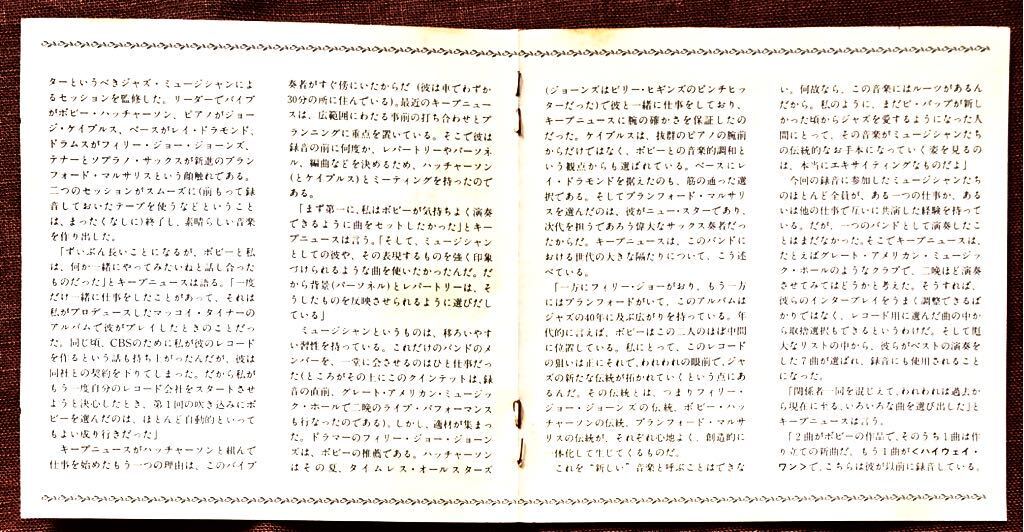 ターというべきジャズ・ミュージシャンによ
るセッションを監修した。リーダーでバイブ
がボビー・ハッチャーソン、ピアノがジョー
ジ・ケイブルス、ベースがレイ・ドラモンド、
ドラムスがフィリー・ジョー・ジョーンズ、
テナーとソプラノ・サックスが新進のブラン
フォード・マルサリスという顔触れである。
二つのセッションがスムーズに(前もって録
音しておいたテープを使うなどということ
は、まったくなしに)終了し、素晴らしい音楽
を作り出した。
「ずいぶん長いことになるが、ボビーと私
は、何か一緒にやってみたいねと話し合った
ものだった」とキープニュースは語る。「一度
だけ一緒に仕事をしたことがあって、それは
私がプロデュースしたマッコイ・タイナーの
アルバムで彼がプレイしたときのことだっ
た。同じ頃、CBSのために私が彼のレコード
を作るという話も持ち上がったんだが、彼は
同社との契約を下りてしまった。だから私が
もう一度自分のレコード会社をスタートさせ
ようと決心したとき、第1回の吹き込みにボ
ビーを選んだのは、ほとんど自動的といって
もよい成り行きだった」
キープニュースがハッチャーソンと組んで
仕事を始めたもう一つの理由は、このバイブ
奏者がすぐ傍にいたからだ(彼は車でわずか
30分の所に住んでいる)。最近のキープニュー
スは、広範囲にわたる事前の打ち合わせとプ
ランニングに重点を置いている。そこで彼は
録音の前に何度か、レパートリーやパーソネ
ル、編曲などを決めるため、ハッチャーソン
(とケイブルス)とミーティングを持ったので
ある。
「まず第一に、私はボビーが気持ちよく演奏
できるように曲をセットしたかった」とキー
プニュースは言う。「そして、ミュージシャン
としての彼や、その表現するものを強く印象
づけられるような曲を使いたかったんだ。だ
から背景(パーソネル)とレパートリーは、そ
うしたものを反映させられるように選びだし
ている」
ミュージシャンというものは、移ろいやす
い習性を持っている。これだけのバンドのメ
ンバーを、一堂に会させるのはひと仕事だっ
た(ところがその上にこのクインテットは、録
音の直前、グレート・アメリカン・ミュージッ
ク・ホールで二晩のライブ・パフォーマンス
も行なったのである)。しかし、適材が集まっ
た。ドラマーのフィリー・ジョー・ジョーン
ズは、ボビーの推薦である。ハッチャーソン
はその夏、タイムレス・オールスターズ
(ジョーンズはビリー・ヒギンズのピンチヒッ
ターだった)で彼と一緒に仕事をしており、
キープニュースに腕の確かさを保証したの
だった。ケイブルスは、抜群のピアノの腕前
からだけではなく、ボビーとの音楽的調和と
いう観点からも選ばれている。ベースにレ
イ・ドラモンドを据えたのも、筋の通った選
択である。そしてブランフォード・マルサリ
スを選んだのは、彼がニュー・スターであり、
次代を担うであろう偉大なサックス奏者だっ
たからだ。キープニュースは、このバンドに
おける世代の大きな隔たりについて、こう述
べている。
「一方にフィリー・ジョーがおり、もう一方
にはブランフォードがいて、このアルバムは
ジャズの40年に及ぶ広がりを持っている。年
代的に言えば、ボビーはこの二人のほぼ中間
に位置している。私にとって、このレコード
の狙いは正にそれで、われわれの眼前で、ジャ
ズの新たな伝統が拓かれていくという点にあ
るんだ。その伝統とは、つまりフィリー・
ジョー・ジョーンズの伝統、ボビー・ハッ
チャーソンの伝統、ブランフォード・マルサ
リスの伝統が、それぞれ心地よく、創造的に
一体化して生じてくるものだ。
これを“新しい”音楽と呼ぶことはできな
い。何故なら、この音楽にはルーツがあるん
だから。私のように、まだビ・バップが新し
かった頃からジャズを愛するようになった人
間にとって、その音楽がミュージシャンたち
の伝統的なお手本になっていく姿を見るの
は、本当にエキサイティングなものだよ」
今回の録音に参加したミュージシャンたち
のほとんど全員が、ある一つの仕事か、ある
いは他の仕事で互いに共演した経験を持って
いる。だが、一つのバンドとして演奏したこ
とはまだなかった。そこでキープニュースは、
たとえばグレート・アメリカン・ミュージッ
ク・ホールのようなクラブで、二晩ほど演奏
させてみてはどうかと考えた。そうすれば、
彼らのインタープレイをうまく調整できるば
かりではなく、レコード用に選んだ曲の中か
ら取捨選択もできるというわけだ。そして厖
大なリストの中から、彼らがベストの演奏を
した7曲が選ばれ、録音にも使用されること
になった。
「関係者一同を混じえて、われわれは過去か
ら現在に至る、いろいろな曲を選び出した」と
キープニュースは言う。
「2曲がボビーの作品で、そのうち1曲は作
り立ての新曲だ。もう1曲が<ハイウェイ・
ワン>で、こちらは彼が以前に録音している。